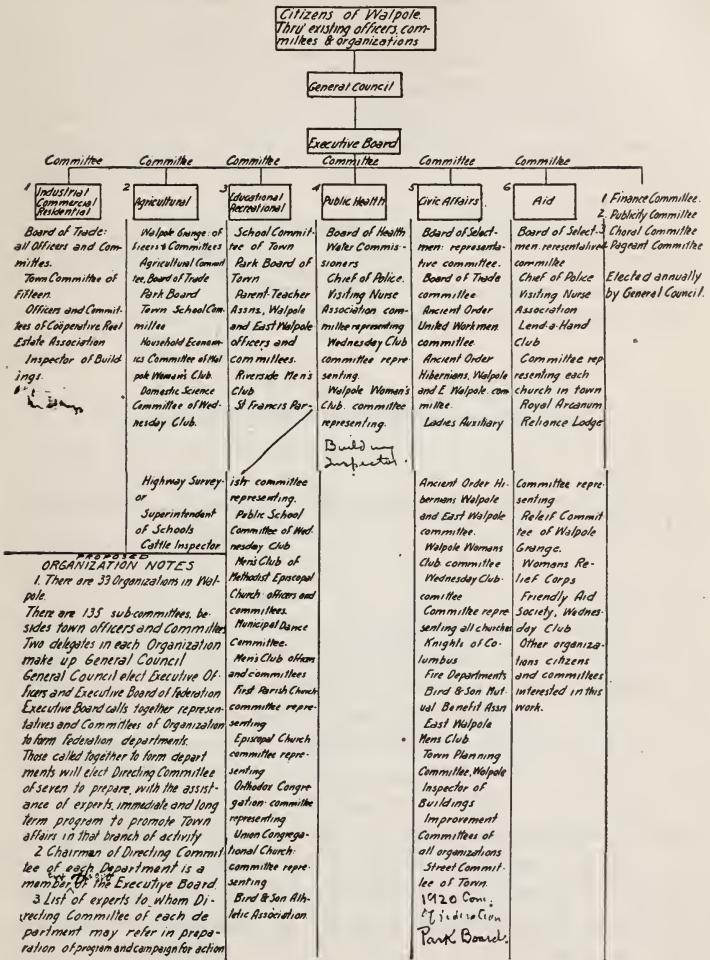 Citizens of Walpole.
Thru' existing officers, com-
mittees & organizations
General Council
Executive Board
Committee
Committee
Committee
Committee
Committee
Committee
1 Industrial
Commercial
Residential
Board of Trade:
all Officers and Com-
mittes.
Town Committee of
Fifteen.
Officers and Commit-
tees of Coöperative Real
Estate Association
Inspector of Build-
ings.
2 Agricultural
Walpole Grange: of
ficers & Committees
Agricultural Commit
tee, Board of Trade
Park Board
Town School Com
mittee
Household Econom-
ics Committee of Wal
pole Woman's Club.
Domestic Science
Committee of Wed-
nesday Club.
Highway Survey-
or
Superintendent
of Schools
Cattle Inspector
3 Educational
Recreational
School Commit-
tee of Town
Park Board of
Town
Parent-Teacher
Assns, Walpole
and East Walpole
officers and
committees.
Riverside Men's
Club
St Francis Par-
ish committee
representing.
Public School
Committee of Wed-
nesday Club
Men's Club of
Methodist Episcopal
Church: officers and
committees.
Municipal Dance
Committee.
Men's Club officers
and committees
First Parish Church
committee repre-
senting
Episcopal Church
committee repre-
senting
Orthodox Congre
gation committee
representing
Union Congrega-
tional Church:
committee repre-
senting
Bird & Son Ath-
letic Association.
4 Public Health
Board of Health
Water Commis-
sioners
Chief of Police.
Visiting Nurse
Association com-
mittee representing
Wednesday Club
committee repre-
senting.
Walpole Woman's
Club. committee
representing.
Building
Inspector.
5 Civic Affairs
Board of Select-
men: representa-
tive committee.
Board of Trade
committee
Ancient Order
United Workmen
committee.
Ancient Order
Hibernians, Walpole
and E Walpole. com
mittee.
Ladies Auxiliary
Ancient Order Hi-
bernians Walpole
and East Walpole
committee.
Walpole Womans
Club committee
Wednesday Club
comittee
Committee repre
senting all churches
Knights of Co-
lumbus
Fire Departments
Bird & Son Mut-
ual Benefit Assn
East Walpole
Mens Club
Town Planning
Committee, Walpole
Inspector of
Buildings
Improvement
Committees of
all organizations
Street Commit-
tee of Town.
1920 Com.
Park Board.
6 Aid
Board of Select-
men. reresentative
committee
Chief of Police
Visiting Nurse
Association
Lend-a-Hand
Club
Committee rep
resenting each
church in town
Royal Arcanum
Reliance Lodge
Committee repre-
senting
Releif Commit
tee of Walpole
Grange.
Womans Re-
lief Corps
Friendly Aid
Society, Wednes-
day Club
Other organiza-
tions citizens
and committees
interested in this
work.
1 Finance Committee.
2. Publicity Committee
3 Choral Committee
4 Pageant Committee
Elected annually
by General Council.
PROPOSED
ORGANIZATION NOTES
1. There are 33 Organizations in Wal-
pole.
There are 135 sub-committees, be-
sides town officers and Committees
Two delegates in each Organization
make up General Council
General Council elect Executive Of-
ficers and Executive Board of Federation
Executive Board calls together represen-
tatives and Committees of Organization
to form Federation departments.
Those called together to form depart
ments will elect Directing Committee
of seven to prepare, with the assist-
ance of experts, immediate and long
term program to promote Town
affairs in that branch of activity
2 Chairman of Directing Commit
tee of each Department is a
member of the Executive Board.
3 List of experts to whom Di-
recting Committee of each de
partment may refer in prepa-
ration of program and campaign for action